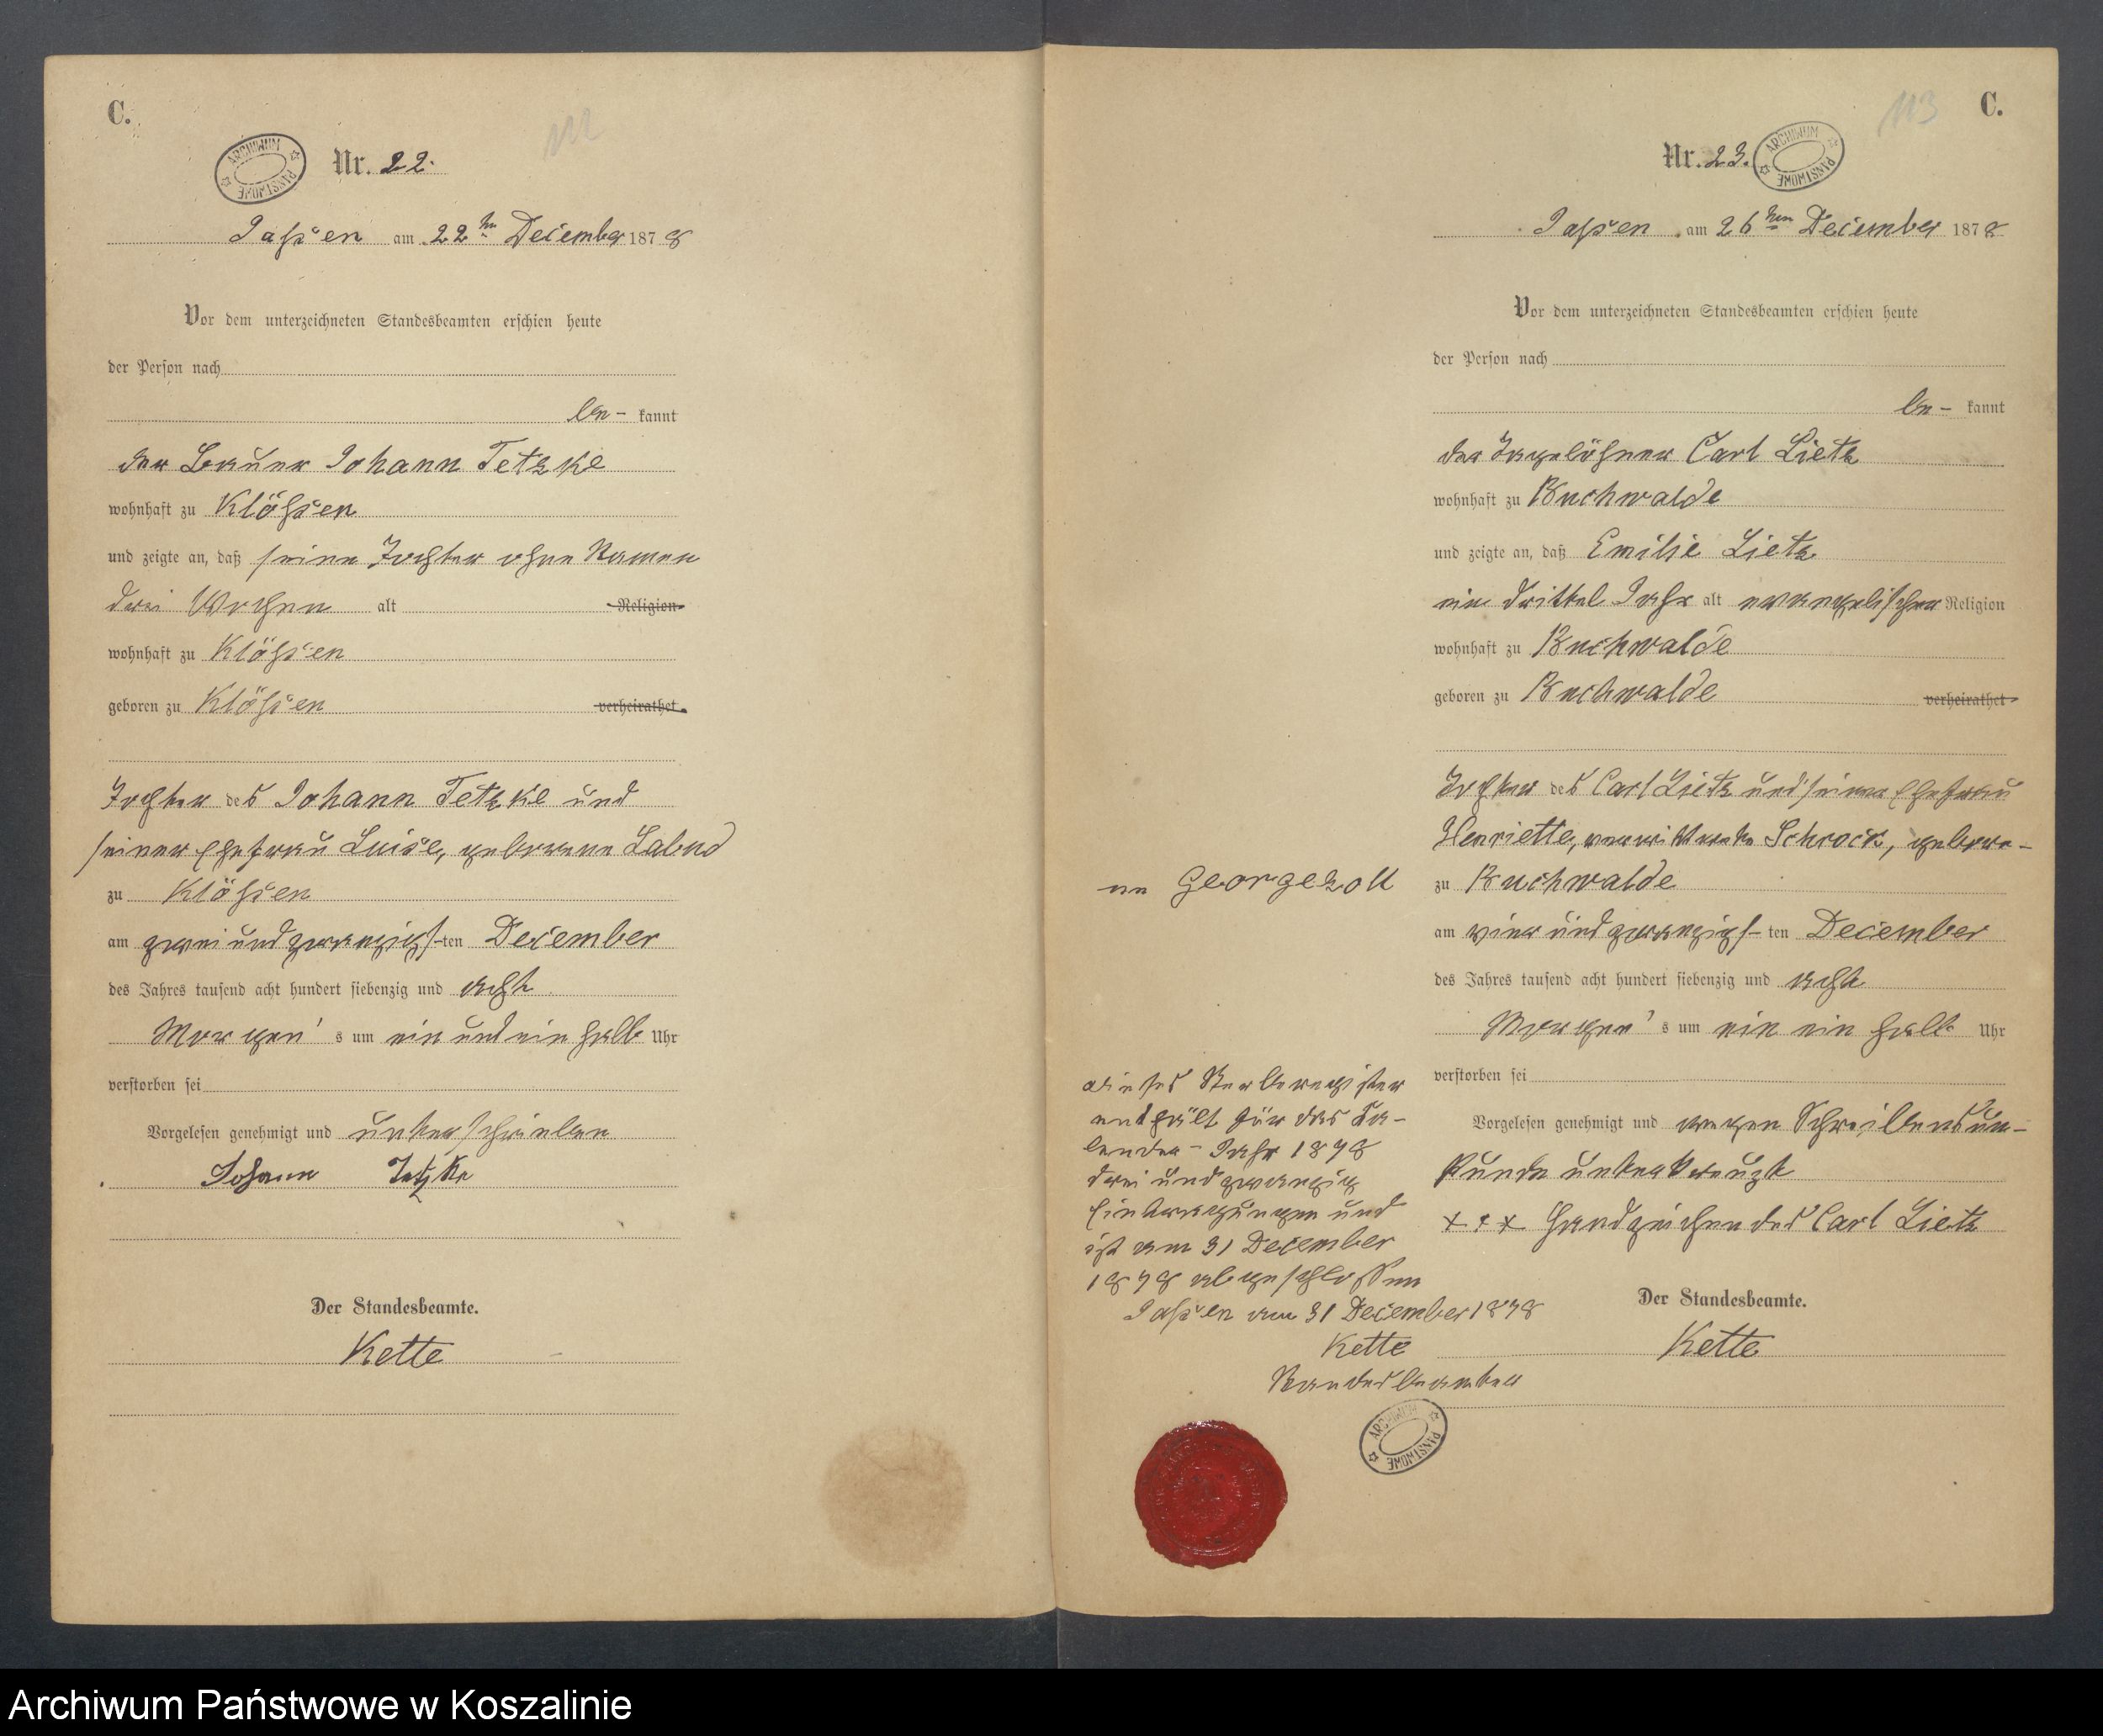 C.
122
ARCHIWUM PAŃSTWOWE
Nr. 22.
Jassen am 22ten December 1878
Vor dem unterzeichneten Standesbeamten erschien heute
der Person nach
be- kannt
der Bauer Johann Tetzke
wohnhaft zu Klössen
und zeigte an, daß seine Tochter ohne Namen
drei Wochen alt Religion
wohnhaft zu Klössen
geboren zu Klössen verheirathet
Tochter des Johann Tetzke und
seiner Ehefrau Luise, geborene Labud
zu Klössen
am zwei und zwanzigsten December
des Jahres tausend acht hundert siebenzig und acht
Morgen's um ein und ein halb Uhr
verstorben sei
Vorgelesen genehmigt und unterschrieben
Johann Tetzke
Der Standesbeamte.
Kette
113
C.
Nr. 23.
ARCHIWUM PAŃSTWOWE
Jassen am 26ten December 1878
Vor dem unterzeichneten Standesbeamten erschien heute
der Person nach
be- kannt
der Tagelöhner Carl Lietz
wohnhaft zu Buchwalde
und zeigte an, daß Emilie Lietz
ein drittel Jahr alt evangelischer Religion
wohnhaft zu Buchwalde
geboren zu Buchwalde verheirathet
Tochter des Carl Lietz und seiner Ehefrau
Henriette, verwittwete Schrock, gebore-
ne Georgezoll zu Buchwalde
am vier und zwanzigsten December
des Jahres tausend acht hundert siebenzig und acht
Morgen's um ein ein halb Uhr
verstorben sei
Vorgelesen genehmigt und wegen Schreibensun-
kunde unterkreuzt
+++ Handzeichen des Carl Lietz
Der Standesbeamte.
Kette
dieses Sterberegister
enthält für das Ka-
lender-Jahr 1878
drei und zwanzig
Eintragungen und
ist am 31 December
1878 abgeschlossen
Jassen am 31 December 1878
Kette
Standesbeamter
ARCHIWUM PAŃSTWOWE
Archiwum Państwowe w Koszalinie